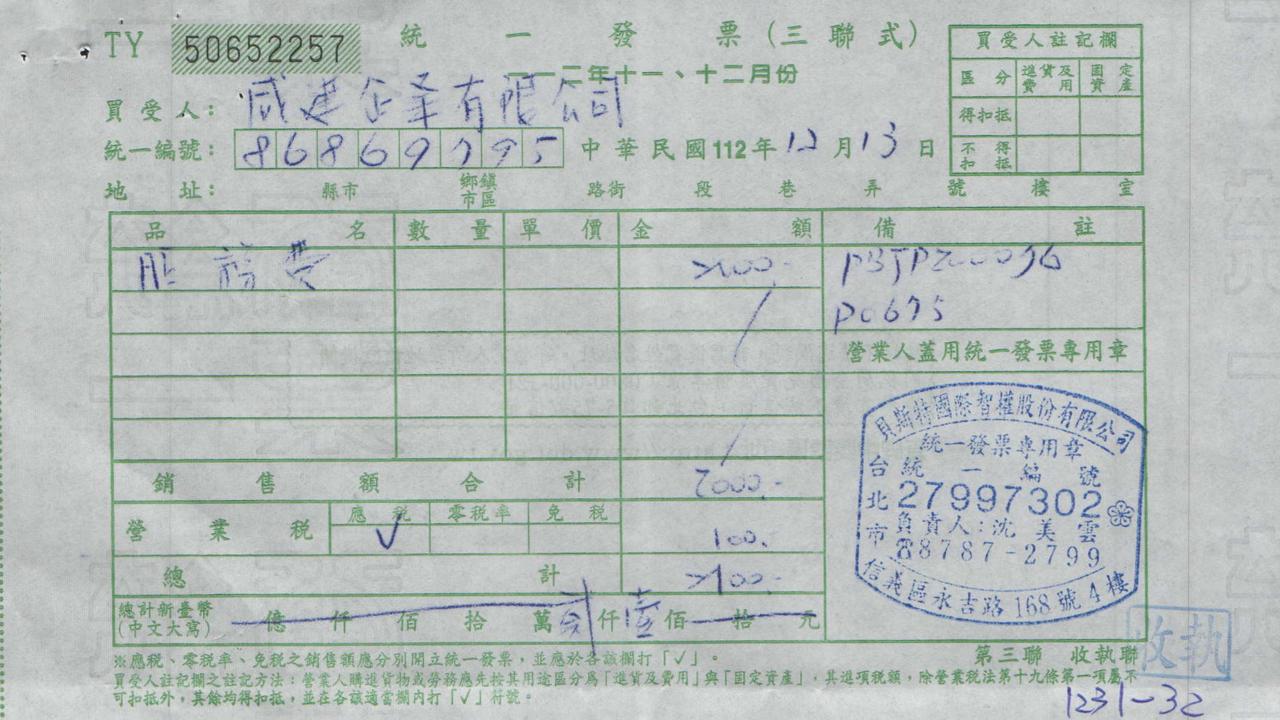 TY 50652257 統一發票(三聯式)
一一二年十一、十二月份
買受人: 威建企業有限公司
統一編號: 86869795 中華民國112年12月13日
地址: 縣市 鄉鎮市區 路街 段 巷 弄 號 樓 室
買受人註記欄
區分 進貨及費用 固定資產
得扣抵
不得扣抵
品名 數量 單價 金額 備註
服務費 2000.- PBTP200096
P0675
營業人蓋用統一發票專用章
銷售額合計 2000.-
營業稅 應稅 零稅率 免稅
√ 100.
總計 2100.-
總計新臺幣
(中文大寫) 億 仟 佰 拾 萬 仟 壹 佰 拾 元
貝斯特國際智權股份有限公司
統一發票專用章
統一編號
27997302
台北市
負責人:沈美雲
☎8787-2799
信義區永吉路168號4樓
※應稅、零稅率、免稅之銷售額應分別開立統一發票,並應於各該欄打「√」。
第三聯 收執聯
收執
買受人註記欄之註記方法:營業人購進貨物或勞務應先按其用途區分為「進貨及費用」與「固定資產」,其進項稅額,除營業稅法第十九條第一項屬不
可扣抵外,其餘均得扣抵,並在各該適當欄內打「√」符號。
1231-32